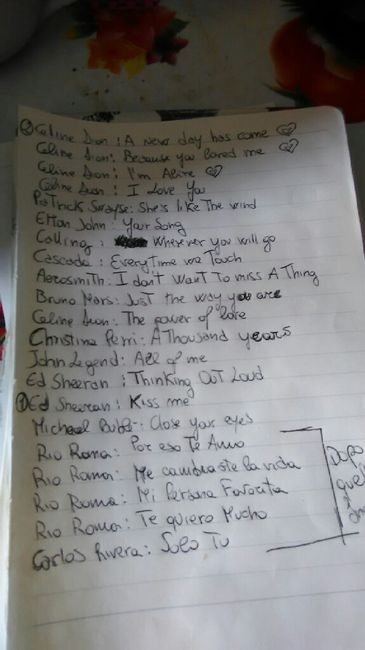 ② Celine Dion: A new day has come
Celine Dion: Because you loved me
Celine Dion: I'm Alive
Celine Dion: I Love you
Patrick Swayse: She's like The wind
Elton John: Your Song
Calling: Wherever you will go
Cascada: Everytime we Touch
Aerosmith: I don't Want To miss A Thing
Bruno Mars: Just the way you are
Celine Dion: The power of love
Christina Perri: A Thousand years
John Legend: All of me
Ed Sheeran: Thinking Out Loud
① Ed Sheeran: Kiss me
Michael Bublè: Close your eyes
Rio Roma: Por eso Te Amo
Rio Roma: Me cambiaste la vida
Rio Roma: Mi Persona Favorita
Rio Roma: Te quiero Mucho
Carlos Rivera: Solo Tu
Dopo